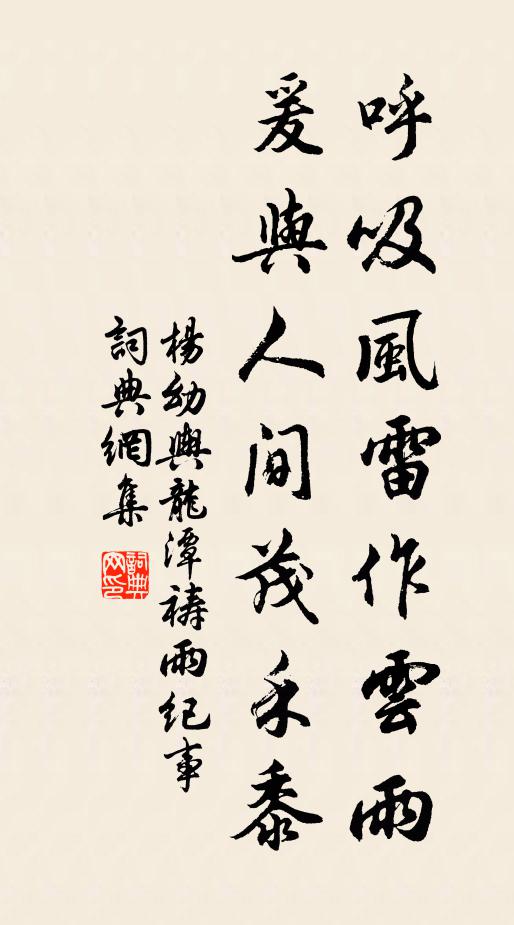 呼吸風雷作雲雨
爰與人間茂禾黍
楊幼輿龍潭禱雨纪事
詞典網集
詞典網印